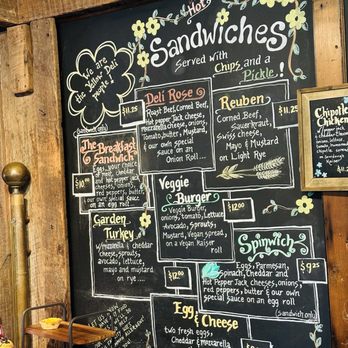 Hot
Sandwiches
Served with
Chips and a
Pickle!
We are
the
Yellow Deli
people!
Deli Rose
Roast Beef, Corned Beef,
Hot pepper Jack cheese,
mozzarella cheese, onions,
Tomato, butter, Mustard,
& our own special
sauce on an
Onion Roll....
$11.25
(sandwich only)
Reuben
Corned Beef,
Sauerkraut,
Swiss cheese,
Mayo & Mustard
on Light Rye
The Breakfast
Sandwich
Eggs, your choice
of meat, cheddar
and hot pepper Jack
cheeses, onions,
red peppers, butter
& our own
special sauce
on an egg roll
Veggie
Burger
Veggie Burger,
onions, tomato, Lettuce
Avocado, sprouts,
Mustard, Vegan spread,
on a vegan Kaiser
roll
$12.00
Garden
Turkey
w/mozzarella & cheddar
cheese, sprouts,
avocado, lettuce,
mayo and mustard
on rye....
$12.00
Spinwich
Eggs, Parmesan,
Spinach, Cheddar and
Hot Pepper Jack cheeses, onions,
red peppers, butter & our own
special sauce on an egg roll
$9.25
(sandwich only)
Egg
& Cheese
two fresh eggs,
Cheddar & mozzarella
Chipotle
Chicken